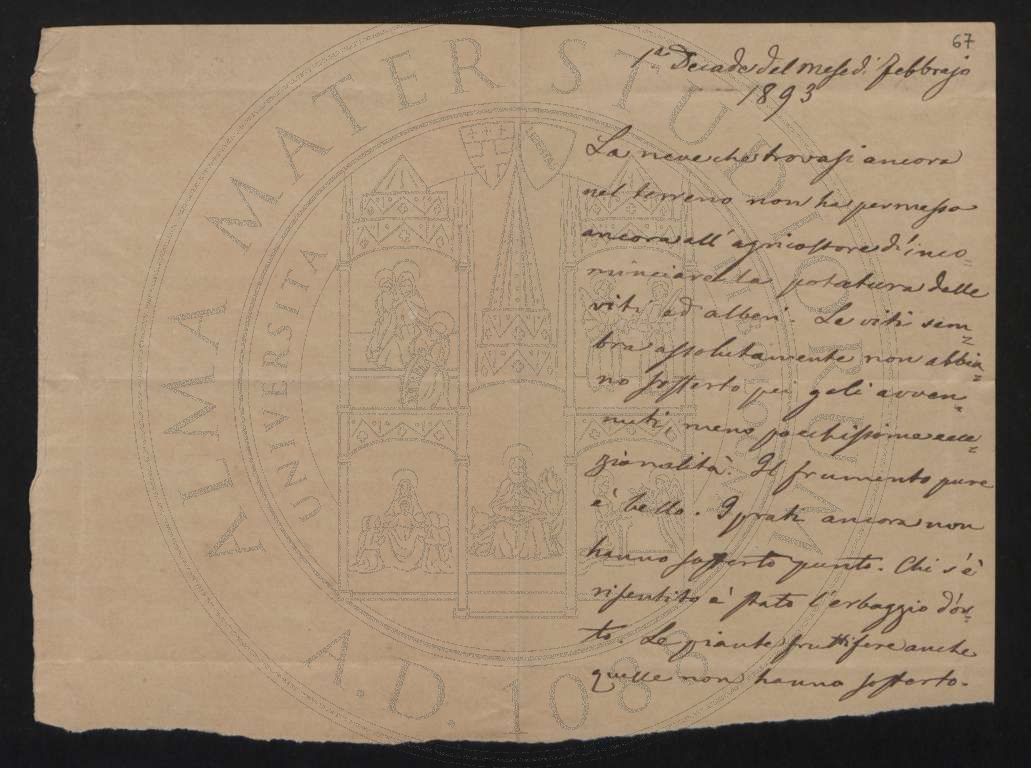 67
1ª Decade del mese di febbrajo
1893
La neve che trovasi ancora
nel terreno non ha permesso
ancora all'agricoltore d'inco=
minciare la potatura delle
viti ad alberi. Le viti sem=
bra assolutamente non abbia=
no sofferto pei geli avven=
nuti, meno pochissime ecce=
zionalità. Il frumento pure
è bello. I prati ancora non
hanno sofferto punto. Chi s'è
risentito è stato l'erbaggio d'or=
to. Le piante fruttifere anche
quelle non hanno sofferto.
ALMA MATER STUDIORUM
UNIVERSITA
A.D. 1088